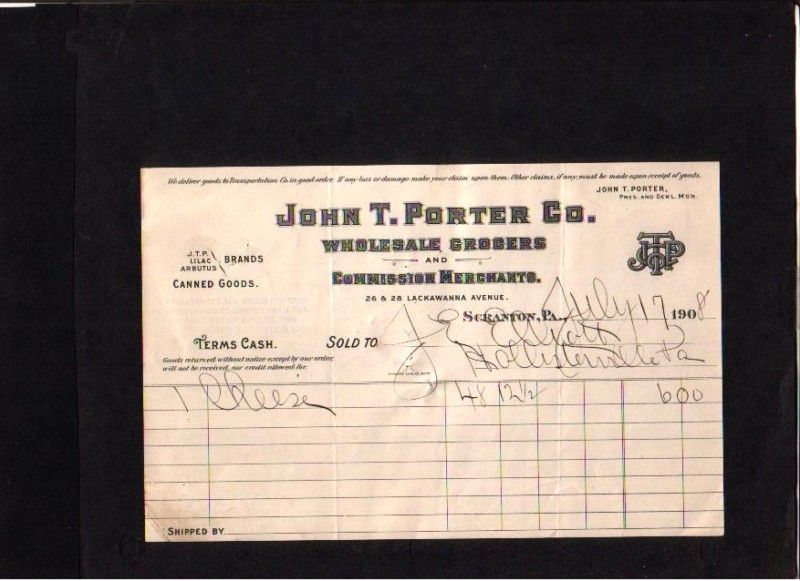 We deliver goods to Transportation Co. in good order. If any loss or damage make your claim upon them. Other claims, if any, must be made upon receipt of goods.
JOHN T. PORTER,
PRES. AND GENL. M'G'R.
JOHN T. PORTER CO.
WHOLESALE GROCERS
AND
COMMISSION MERCHANTS.
26 & 28 LACKAWANNA AVENUE.
J.T.P.
LILAC
ARBUTUS
BRANDS
CANNED GOODS.
JTP
SCRANTON, PA., July 17 1908
TERMS CASH.
SOLD TO
Hollisterville Pa
Goods returned without notice except by our order,
will not be received, nor credit allowed for.
1 Cheese 48 12½ 600
SHIPPED BY